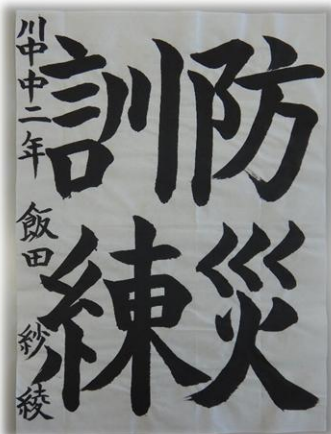 防災
訓練
川中中二年 飯田 紗綾